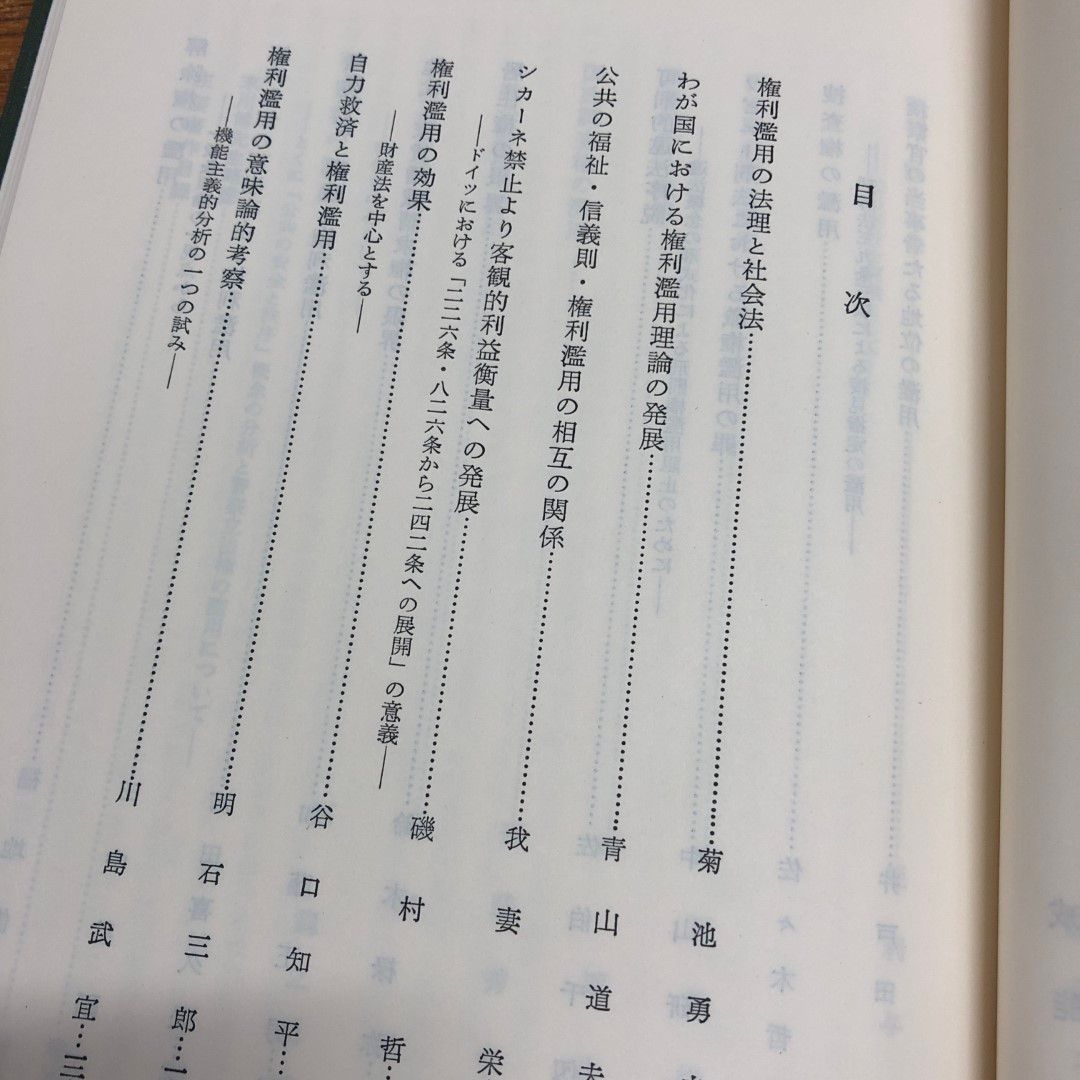 目次
権利濫用の法理と社会法……菊池勇夫
わが国における権利濫用理論の発展……青山道夫
公共の福祉・信義則・権利濫用の相互の関係……我妻栄
シカーネ禁止より客観的利益衡量への発展……磯村哲
――ドイツにおける「二二六条・八二六条から二四二条への展開」の意義――
権利濫用の効果……谷口知平…
――財産法を中心とする――
自力救済と権利濫用……明石三郎…一
権利濫用の意味論的考察……川島武宜…三
――機能主義的分析の一つの試み――